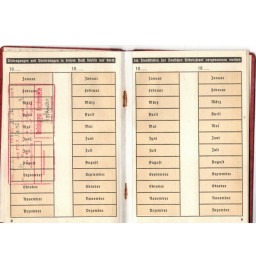 Eintragungen und Änderungen in diesem Buch dürfen nur durch
die Dienststellen der Deutschen Arbeitsfront vorgenommen werden
19 19
Januar Januar
Februar Februar
März März
April April
Mai Mai
Juni Juni
Juli Juli
August August
September September
Oktober Oktober
November November
Dezember Dezember
19 19
Januar Januar
Februar Februar
März März
April April
Mai Mai
Juni Juni
Juli Juli
August August
September September
Oktober Oktober
November November
Dezember Dezember